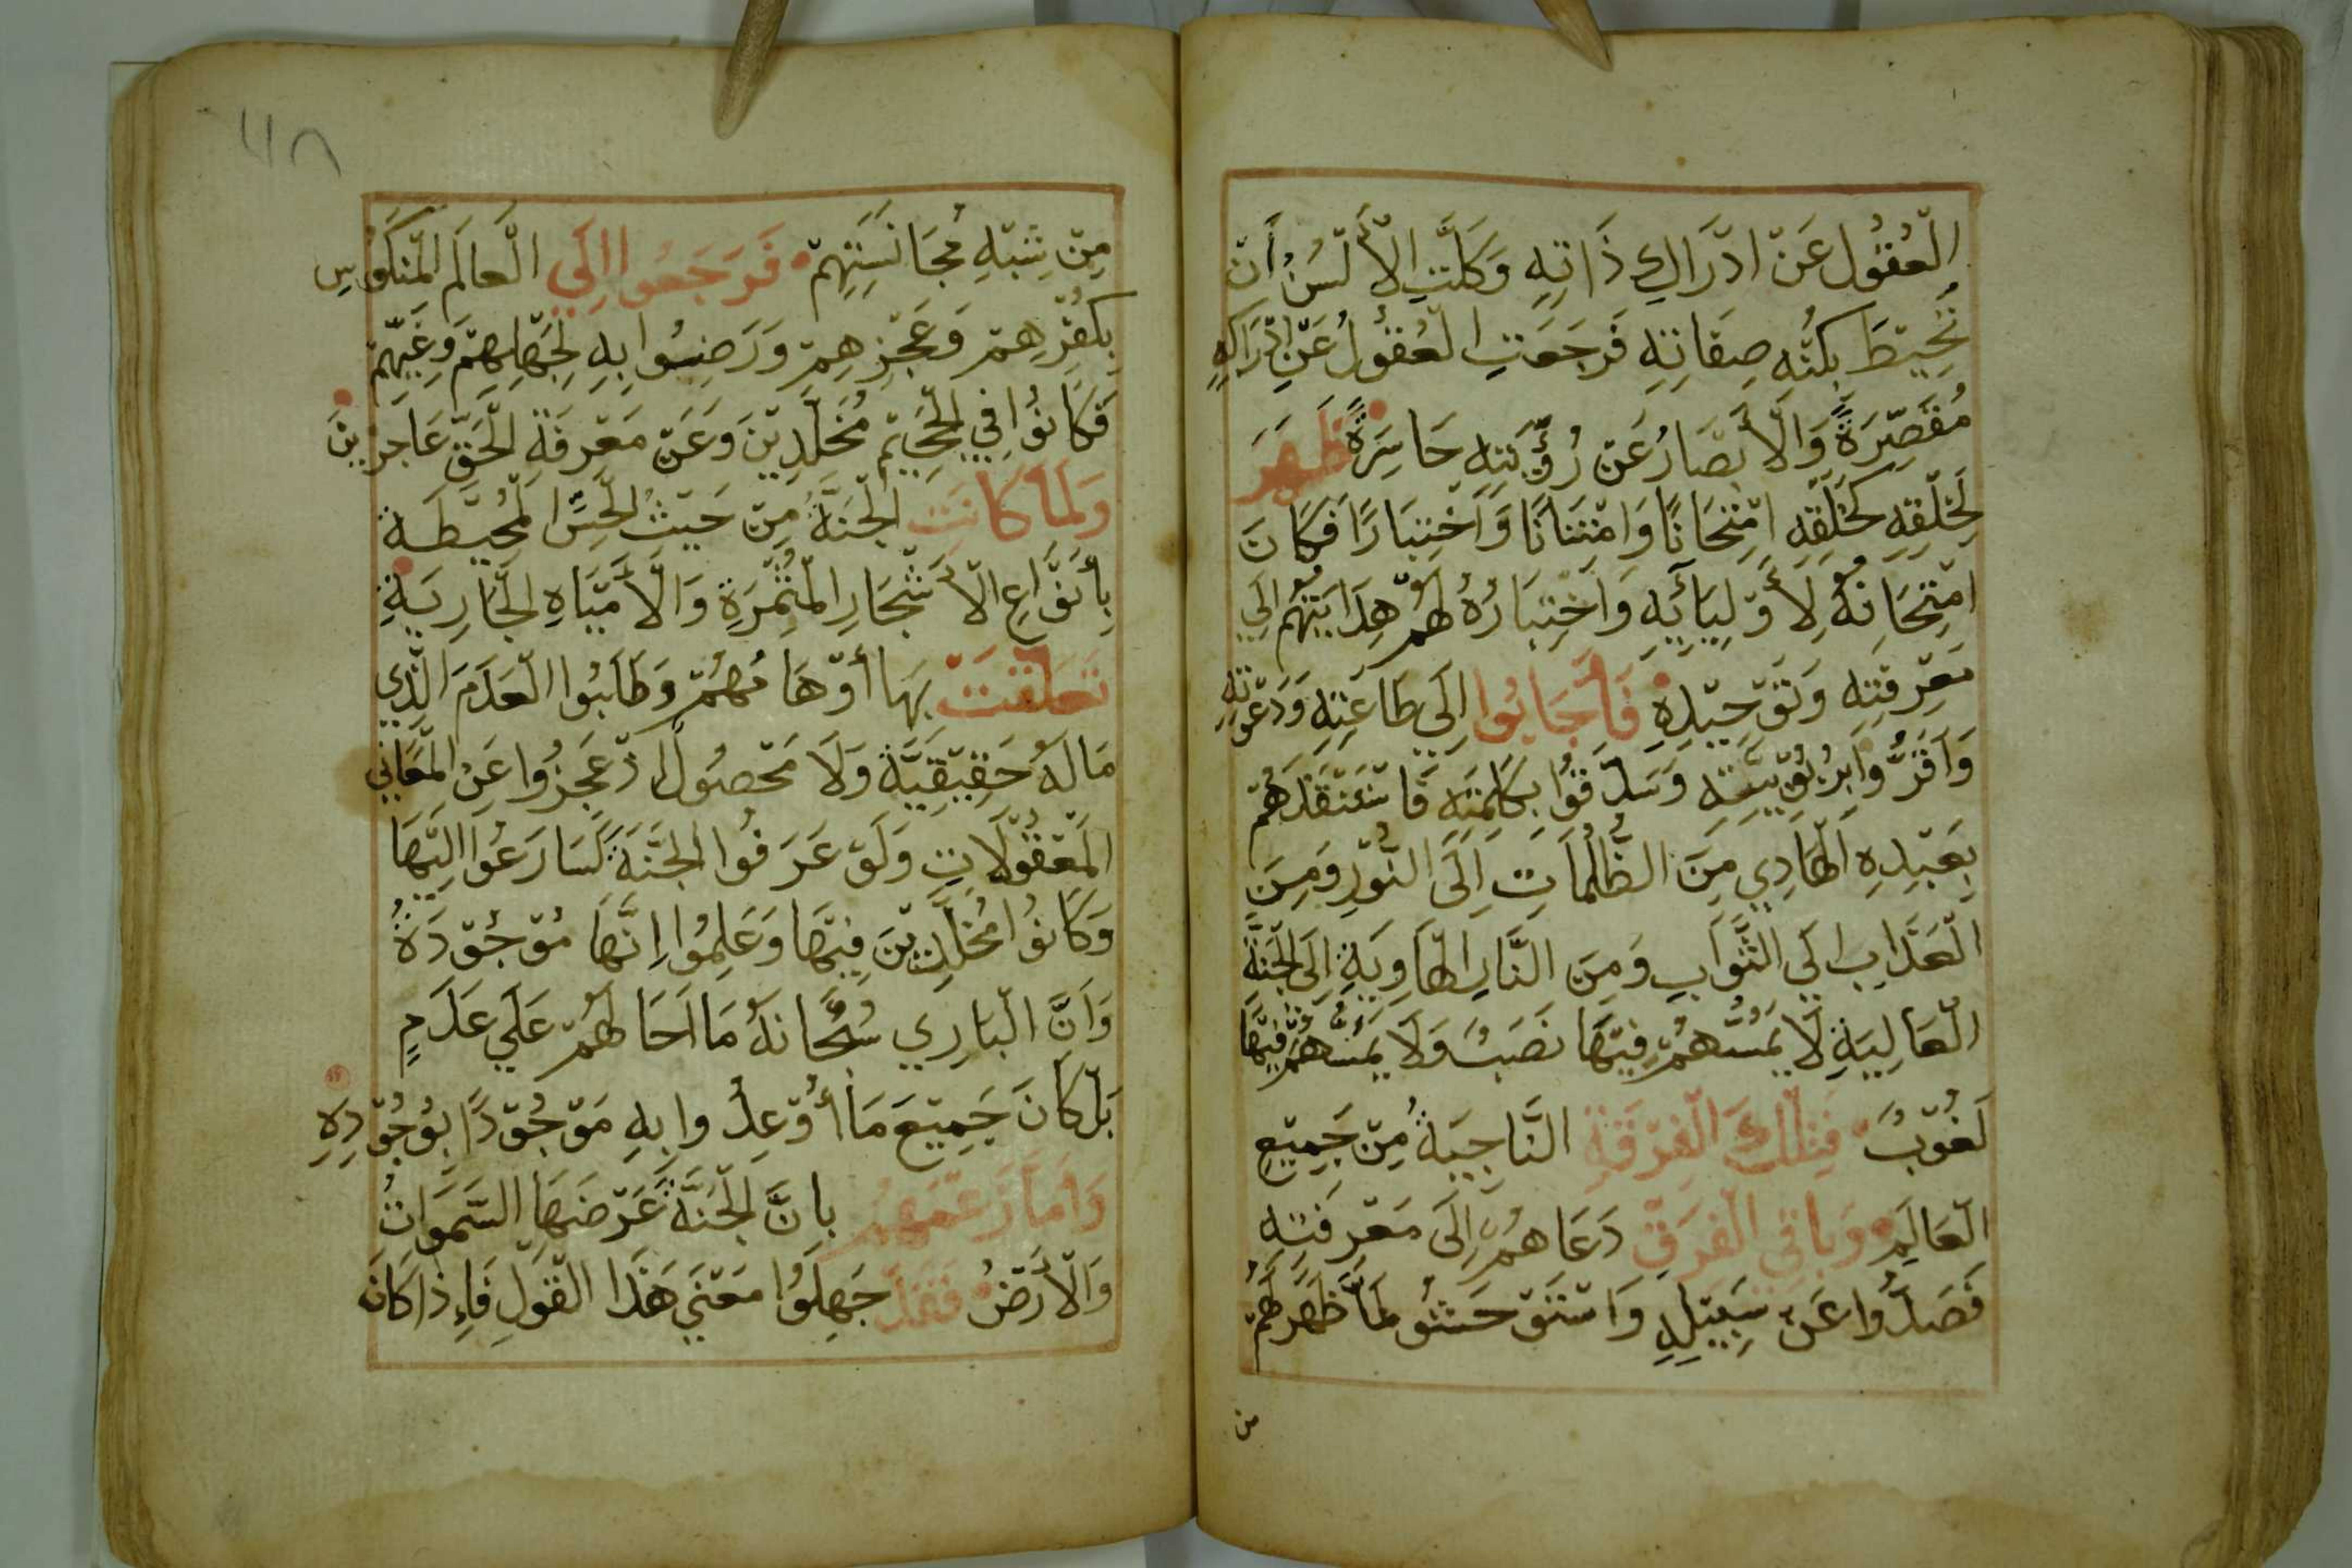 الْعُقُولُ عَنْ ادْرَاكِ ذَاتِهِ وَكَلَّتِ الْأَلْسُنُ أَنْ
تُحِيْطَ بِكُنْهِ صِفَاتِهِ فَرَجَعَتِ الْعُقُولُ عَنْ ادْرَاكِهِ
مُقَصِّرَةً وَالْأَبْصَارُ عَنْ رُؤْيَتِهِ حَاسِرَةً ظَهَرَ
لِخَلْقِهِ كَخَلْقِهِ امْتِحَانًا وَامْتِنَانًا وَاَخْتِبَارًا فَكَانَ
امْتِحَانُهُ لِأَوْلِيَائِهِ وَاَخْتِبَارُهُ لَهُمْ هِدَايَتَهُمْ اِلَي
مَعْرِفَتِهِ وَتَوْحِيْدِهِ فَأَجَابُوا اِلَى طَاعَتِهِ وَدَعْوَتِهِ
وَاَقَرُّوا بِرُبُوْبِيَّتِهِ وَصَدَّقُوا بِكَلِمَتِهِ فَاسْتَنْقَذَهُمْ
بِعَبْدِهِ الْهَادِي مِنَ الظُّلُمَاتِ اِلَى النُّوْرِ وَمِنَ
الْعَذَابِ اِلَى الثَّوَابِ وَمِنَ النَّارِ الْهَاوِيَةِ اِلَى الْجَنَّةِ
الْعَالِيَةِ لَا يَمَسُّهُمْ فِيْهَا نَصَبٌ وَلَا يَمَسُّهُمْ فِيْهَا
لُغُوْبٌ فَتِلْكَ الْفِرْقَةِ النَّاجِيَةُ مِنْ جَمِيْعِ
الْعَالَمِ وَبَاقِي الْفِرَقِ دَعَاهُمْ اِلَى مَعْرِفَتِهِ
فَصَدُّوا عَنْ سَبِيْلِهِ وَاسْتَوْحَشُو لَمَّا ظَهَرَ لَهُمْ
من
٦٨
مِنْ شِبْهِ مُجَانَسَتِهِمْ فَرَجَعُوا اِلَي الْعَالَمِ الْمَنْكُوْسِ
بِكُفْرِهِمْ وَعَجْزِهِمْ وَرَضِيُوا بِهِ لِجَهْلِهِمْ وَغَيِّهِمْ
فَكَانُوا فِي الْجَحِيْمِ مُخَلَّدِيْنَ وَعَنْ مَعْرِفَةِ الْحَقِّ عَاجِزِيْنَ
وَلَمَّا كَانَتِ الْجَنَّةُ مِنْ حَيْثُ الْحِسِّ الْمُحِيْطَةِ
بِأَنْوَاعِ الْأَشْجَارِ الْمُثْمِرَةِ وَالْأَمْيَاهِ الْجَارِيَةِ
تَعَلَّقَتْ بِهَا أَوْهَامُهُمْ وَطَلَبُوا الْعَدَمَ الَّذِي
مَالَهُ حَقِيْقِيَّةٌ وَلَا مَحْصُولٌ اذْ عَجَزُوا عَنِ الْمَعَانِي
الْمَعْقُوْلَاتِ وَلَوْ عَرَفُوا الْجَنَّةَ لَسَارَعُوا اِلَيْهَا
وَكَانُوا مُخَلَّدِيْنَ فِيْهَا وَعَلِمُوا اِنَّهَا مَوْجُوْدَةٌ
وَاَنَّ الْبَارِي سُبْحَانَهُ مَا اَحَالَهُمْ عَلَي عَدَمٍ
بَلْ كَانَ جَمِيْعَ مَا أُوْعِدُوا بِهِ مَوْجُوْدًا بِوُجُوْدِهِ
وَاَمَّا زَعْمَهُمْ بِاَنَّ الْجَنَّةَ عَرْضَهَا السَّمَوَاتُ
وَالْأَرْضُ فَقَدْ جَهِلُوا مَعْنَي هَذَا الْقَوْلِ فَاِذَا كَانَ